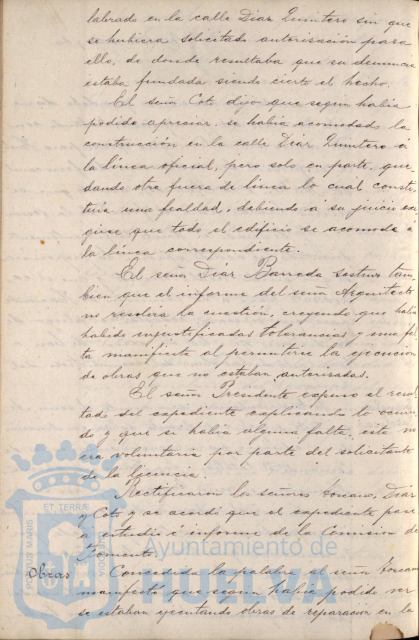 labrado en la calle Diaz Quintero sin que
se hubiera solicitado autorización para
ello, de donde resultaba que su denuncia
estaba fundada siendo cierto el hecho.
El señor Coto dijo que según habia
podido apreciar, se habia acomodado la
construcción en la calle Diaz Quintero á
la linea oficial, pero solo en parte, que-
dando otra fuera de linea lo cual consti-
tuia una fealdad, debiendo á su juicio exi-
girse que todo el edificio se acomode á
la linea correspondiente.
El señor Diaz Barreda sostuvo tam-
bien que el informe del señor Arquitecto
no resolvia la cuestión, creyendo que habia
habido injustificadas tolerancias y una fal-
ta manifiesta al permitirse la ejecucion
de obras que no estaban autorizadas.
El señor Presidente expuso el resul-
tado del expediente explicando lo ocurri-
do y que si habia alguna falta, esta no
era voluntaria por parte del solicitante
de la licencia.
Rectificaron los señores Diaz
y Coto y se acordó que el expediente pase
á estudio é informe de la Comision de
Fomento.
Obras Concedida la palabra al señor
manifestó que segun habia podido ver
se estaban ejecutando obras de reparación en la
ET TERRÆ
PORTUS MARIS
CUSTODIA
Ayuntamiento de
HUELVA